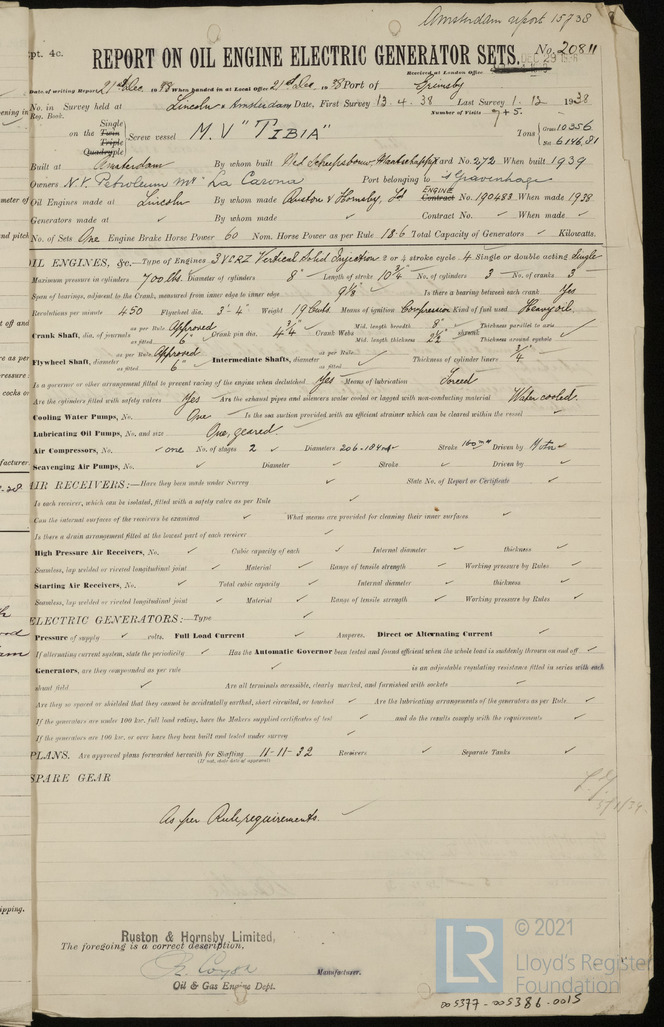 Amsterdam report 15738
Rpt. 4c.
REPORT ON OIL ENGINE ELECTRIC GENERATOR SETS. No. 20811
Received at London Office DEC 29 1938
Date of writing Report 21st Dec. 1938 When handed in at Local Office 21st Dec. 1938 Port of Grimsby
No. in Survey held at Lincoln & Amsterdam Date, First Survey 13.4.38 Last Survey 1-12 1938
Reg. Book. Number of Visits 7+5.
Single
on the Twin Screw vessel M.V "TIBIA" Tons Gross 10356
Triple
Quadruple Net 6146,81
Built at Amsterdam By whom built Ned. Scheepsbouw. Maatschappij Yard No. 272 When built 1939
Owners N.V. Petroleum Mij La Corona Port belonging to s'Gravenhage
Oil Engines made at Lincoln By whom made Ruston & Hornsby, Ld ENGINE Contract No. 190483 When made 1938
Generators made at ✓ By whom made ✓ Contract No. ✓ When made ✓
No. of Sets One Engine Brake Horse Power 60 Nom. Horse Power as per Rule 18.6 Total Capacity of Generators ✓ Kilowatts.
OIL ENGINES, &c.—Type of Engines 3VCRZ Vertical Solid Injection 2 or 4 stroke cycle 4 Single or double acting Single
Maximum pressure in cylinders 700 lbs. Diameter of cylinders 8" Length of stroke 10 3/4" No. of cylinders 3 No. of cranks 3
Span of bearings, adjacent to the Crank, measured from inner edge to inner edge 9 1/8" Is there a bearing between each crank Yes
Revolutions per minute 450 Flywheel dia. 3'-4" Weight 19 Cwts. Means of ignition Compression Kind of fuel used Heavy oil.
Crank Shaft, dia. of journals as per Rule Approved as fitted 6" Crank pin dia. 4 3/4" Crank Webs Mid. length breadth 8" Thickness parallel to axis ✓
Mid. length thickness 2 1/2" shrunk Thickness around eyehole ✓
Flywheel Shaft, diameter as per Rule Approved as fitted 6" Intermediate Shafts, diameter as per Rule as fitted Thickness of cylinder liners 3/4"
Is a governor or other arrangement fitted to prevent racing of the engine when declutched Yes Means of lubrication Forced
Are the cylinders fitted with safety valves Yes Are the exhaust pipes and silencers water cooled or lagged with non-conducting material Water cooled.
Cooling Water Pumps, No. One Is the sea suction provided with an efficient strainer which can be cleared within the vessel ✓
Lubricating Oil Pumps, No. and size One, geared.
Air Compressors, No. ✓ one No. of stages 2 Diameters 206-184 mm Stroke 160 mm Driven by Motor
Scavenging Air Pumps, No. ✓ Diameter ✓ Stroke ✓ Driven by ✓
AIR RECEIVERS:—Have they been made under Survey ✓ State No. of Report or Certificate ✓
Is each receiver, which can be isolated, fitted with a safety valve as per Rule ✓
Can the internal surfaces of the receivers be examined ✓ What means are provided for cleaning their inner surfaces ✓
Is there a drain arrangement fitted at the lowest part of each receiver ✓
High Pressure Air Receivers, No. ✓ Cubic capacity of each ✓ Internal diameter ✓ thickness ✓
Seamless, lap welded or riveted longitudinal joint ✓ Material ✓ Range of tensile strength ✓ Working pressure by Rules ✓
Starting Air Receivers, No. ✓ Total cubic capacity ✓ Internal diameter ✓ thickness ✓
Seamless, lap welded or riveted longitudinal joint ✓ Material ✓ Range of tensile strength ✓ Working pressure by Rules ✓
ELECTRIC GENERATORS:—Type ✓
Pressure of supply ✓ volts. Full Load Current ✓ Amperes. Direct or Alternating Current ✓
If alternating current system, state the periodicity ✓ Has the Automatic Governor been tested and found efficient when the whole load is suddenly thrown on and off ✓
Generators, are they compounded as per rule ✓ is an adjustable regulating resistance fitted in series with each
shunt field ✓ Are all terminals accessible, clearly marked, and furnished with sockets ✓
Are they so spaced or shielded that they cannot be accidentally earthed, short circuited, or touched ✓ Are the lubricating arrangements of the generators as per Rule ✓
If the generators are under 100 kw. full load rating, have the Makers supplied certificates of test ✓ and do the results comply with the requirements ✓
If the generators are 100 kw. or over have they been built and tested under survey ✓
PLANS. Are approved plans forwarded herewith for Shafting 11-11-32 Receivers ✓ Separate Tanks ✓
(If not, state date of approval)
SPARE GEAR
As per Rule requirements. ✓
3/1/39
Ruston & Hornsby Limited,
The foregoing is a correct description,
Manufacturer.
Oil & Gas Engine Dept.
© 2021
LR Lloyd's Register
Foundation
005377-005386-0015